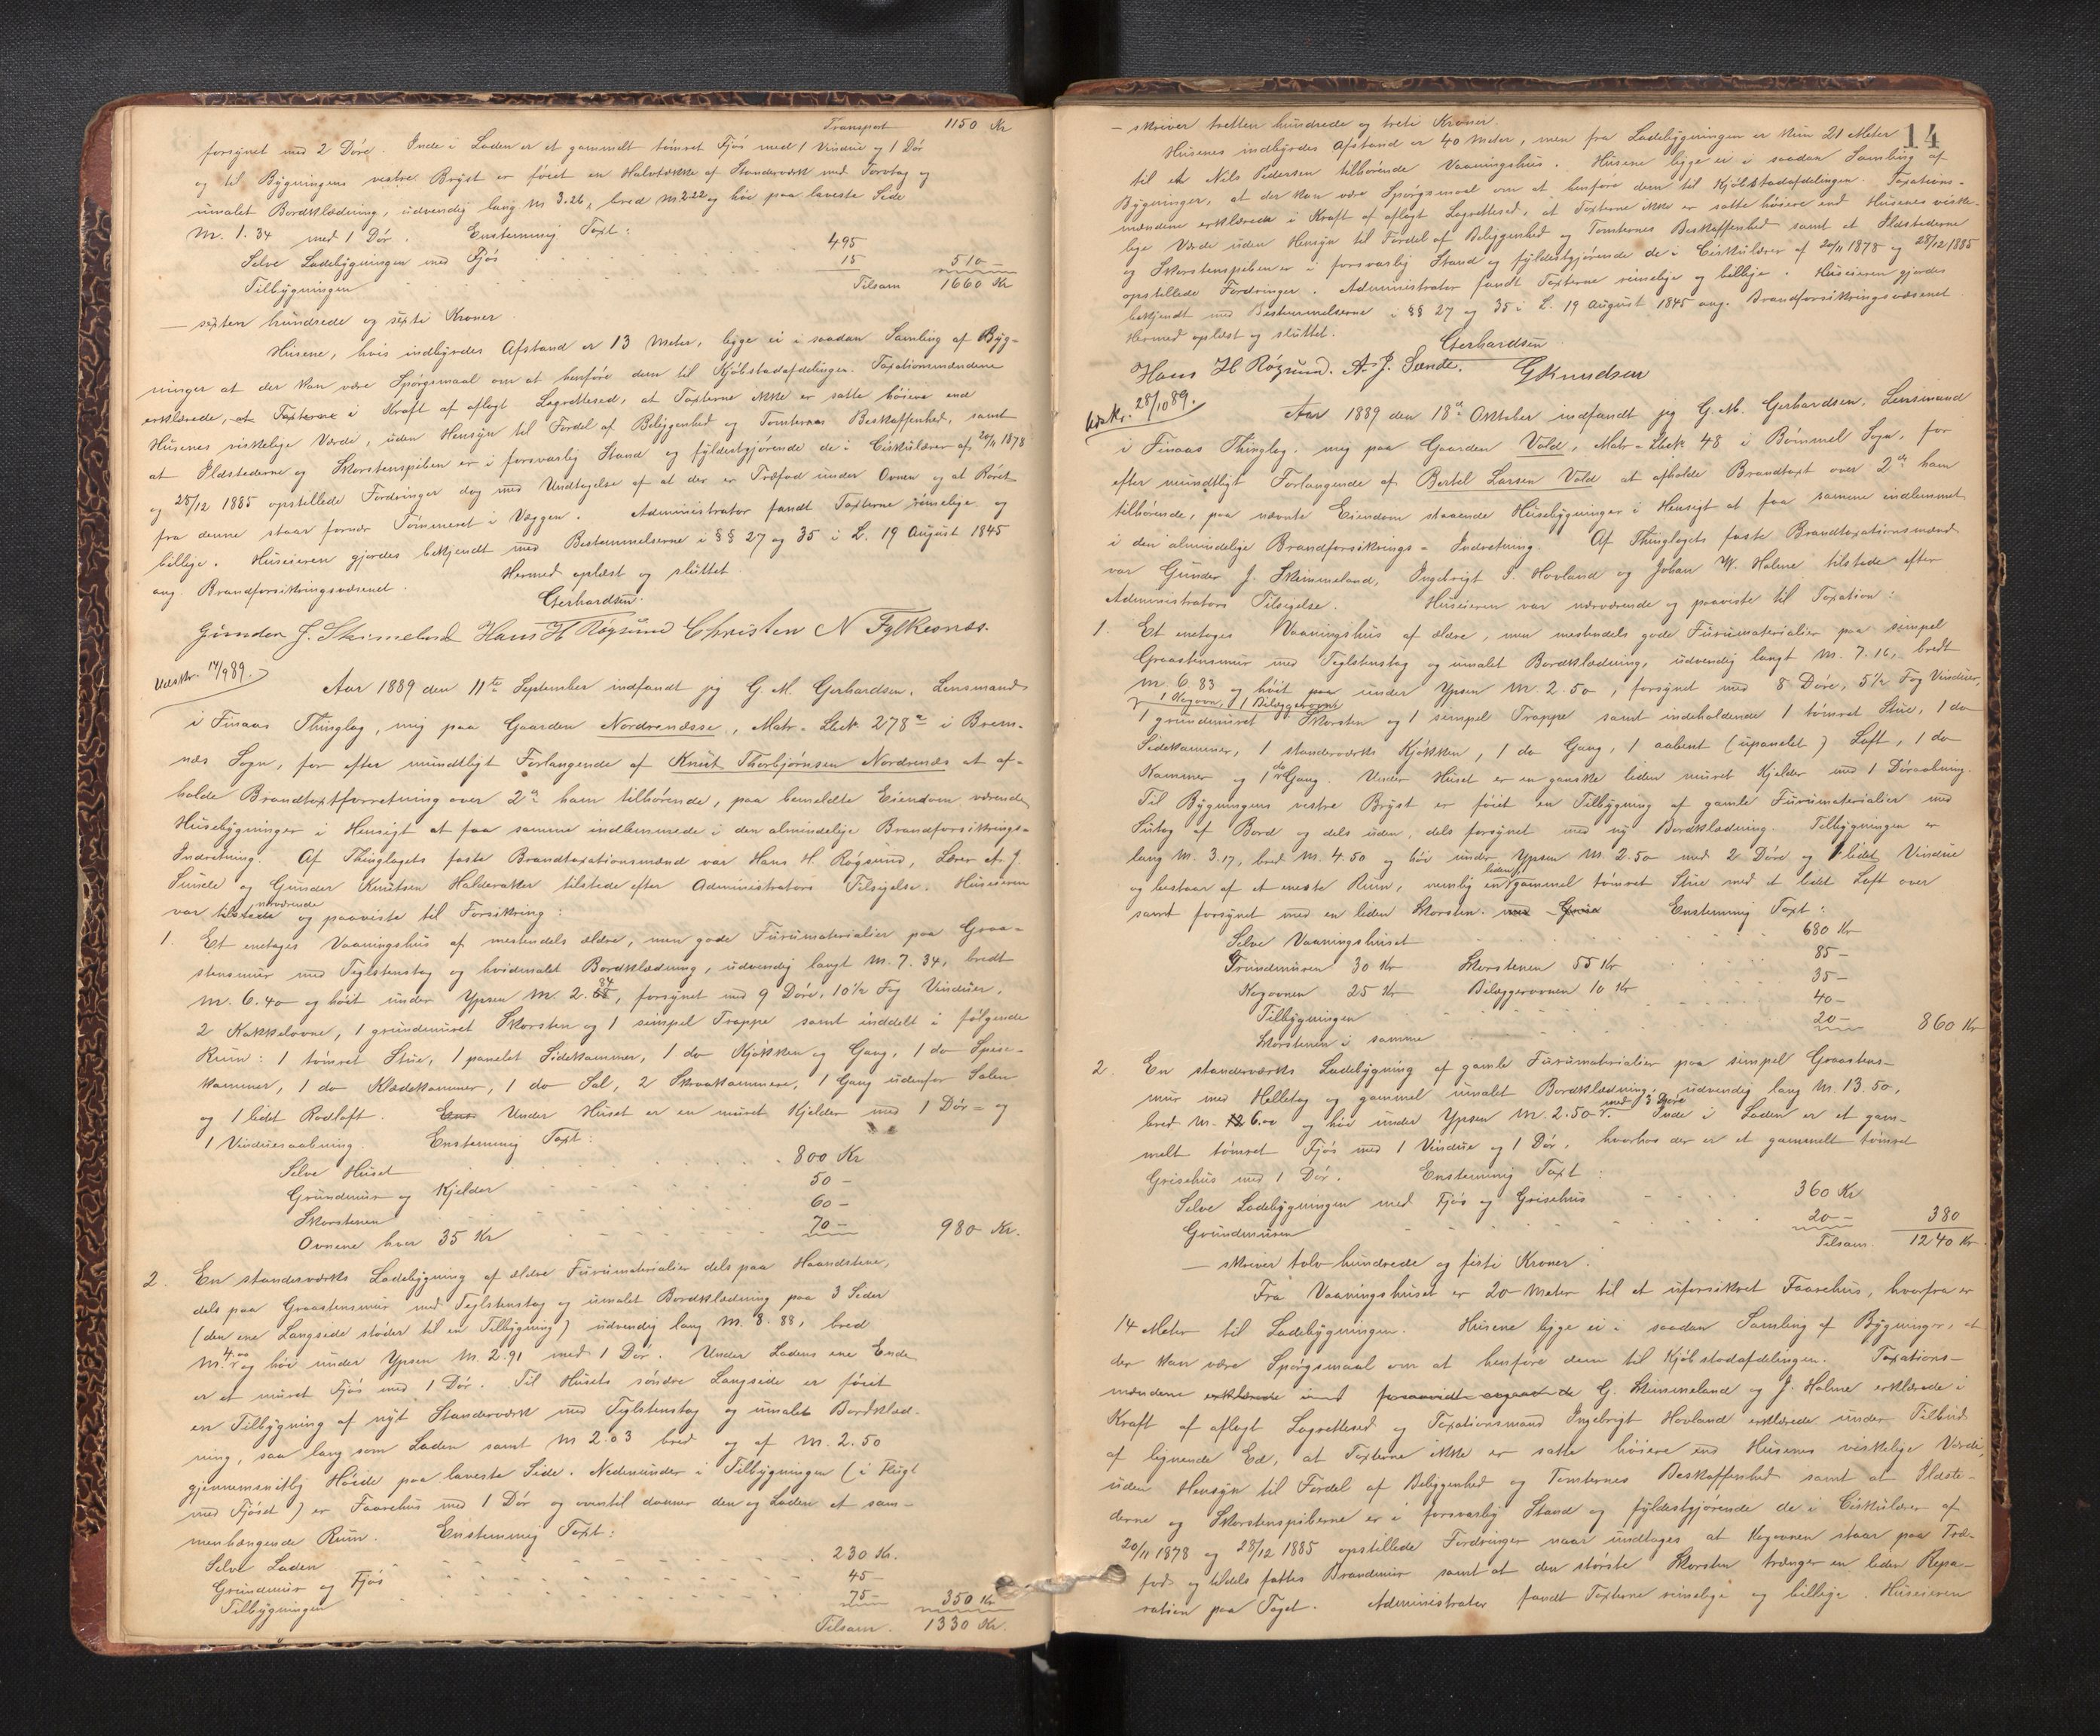 Transport 1150 Kr
forsynet med 2 Döre. Inde i Laden er et gammelt tömret Fjös med 1 Vindue og 1 Dör
og til Bygningens vestre Bryst er föiet en Halvtække af Standerværk med Torvtag og
umalet Bordklædning, udvendig lang M 3.26, bred M 2.22 og höi paa laveste Side
M. 1.34 med 1 Dör. Enstemmig Taxt:
Selve Ladebygningen med Fjös 495
Tilbygningen 15 510 -
Tilsam 1660 Kr
— sexten hundrede og sexti Kroner.
Husene, hvis indbyrdes Afstand er 13 Meter, ligge ei i saadan Samling af Byg-
ninger at der kan være Spörgsmaal om at henföre dem til Kjöbstadafdelingen. Taxationsmændene
erklærede, at Taxterne i Kraft af aflagt Lagrettesed, at Taxterne ikke er satte höiere end
Husenes virkelige Værde, uden Hensyn til Fordel af Beliggenhed og Tomternes Beskaffenhed, samt
at Ildstederne og Skorstenspiben er i forsvarlig Stand og fyldestgjörende de i Cirkulærer af 20/11 1878
og 28/12 1885 opstillede Fordringer dog med Undtagelse af at der er Træfod under Ovnen og at Röret
fra denne staar fornær Tömmeret i Væggen. Administrator fandt Taxterne rimelige og
billige. Huseieren gjordes bekjendt med Bestemmelserne i §§ 27 og 35 i L. 19 August 1845
ang. Brandforsikringsvæsenet. Hermed oplæst og sluttet.
Gerhardsen.
Gunder J. Skimeland Hans H Rögsund Christen N Fylkesnæs.
Udskr. 14/9 89.
Aar 1889 den 11te September indfandt jeg G. M. Gerhardsen, Lensmand
i Finaas Thinglag, mig paa Gaarden Nordrenæsse, Matr. Löck 278a i Brem-
næs Sogn, for efter mundtligt Forlangende af Knut Thorbjörnsen Nordrenæs at af-
holde Brandtaxtforretning over 2de ham tilhörende, paa bemeldte Eiendom værende
Husebygninger i Hensigt at faa samme indlemmede i den almindelige Brandforsikrings-
Indretning. Af Thinglagets faste Brandtaxationsmænd var Hans H. Rögsund, Lærer A. J.
Sunde og Gunder Knutsen Halderaker tilstede efter Administrators Tilsigelse. Huseieren
var tilstede nærværende og paaviste til Forsikring:
1. Et enetages Vaaningshus af mestendels ældre, men gode Furumaterialier paa Graa-
stensmur med Teglstenstag og hvidmalet Bordklædning, udvendig langt M. 7.34, bredt
M. 6.40 og höit under Ypsen M. 2.84, forsynet med 9 Döre, 10½ Fag Vinduer,
2 Kakkelovne, 1 grundmuret Skorsten og 1 simpel Trappe samt inddelt i fölgende
Rum: 1 tömret Stue, 1 panelet Sidekammer, 1 do Kjökken og Gang, 1 do Spise-
kammer, 1 do Klædekammer, 1 do Sal, 2 Skraakammere, 1 Gang udenfor Salen
og 1 lidet Rodloft. Ens Under Huset er en muret Kjelder med 1 Dör- og
1 Vinduesaabning. Enstemmig Taxt:
Selve Huset 800 Kr
Grundmur og Kjelder 50 -
Skorstenen 60 -
Ovnene hver 35 Kr 70 - 980 Kr.
2. En standerværks Ladebygning af ældre Furumaterialier dels paa Haandstene,
dels paa Graastensmur med Teglstenstag og umalet Bordklædning paa 3 Sider
(den ene Langside stöder til en Tilbygning) udvendig lang M. 8.88, bred
M. 4.00 og höi under Ypsen M. 2.91 med 1 Dör. Under Ladens ene Ende
er et muret Fjös med 1 Dör. Til Husets söndre Langside er föiet
en Tilbygning af nyt Standerværk med Teglstenstag og umalet Bordklæd-
ning, saa lang som Laden samt M 2.03 bred og af M. 2.50
gjennemsnitlig Höide paa laveste Side. Nedenunder i Tilbygningen (i Flugt
med Fjöset) er Faarehus med 1 Dör og oventil danner den og Laden et sam-
menhængende Rum. Enstemmig Taxt:
Selve Laden 230 Kr.
Grundmur og Fjös 45 -
Tilbygningen 75 - 350 Kr
Tilsam. 1330 Kr.
14
— skriver tretten hundrede og treti Kroner.
Husenes indbyrdes Afstand er 40 Meter, men fra Ladebygningen er kun 21 Meter
til et Nils Pedersen tilhörende Vaaningshus. Husene ligge ei i saadan Samling af
Bygninger, at der kan være Spörgsmaal om at henföre dem til Kjöbstadafdelingen. Taxations-
mændene erklærede i Kraft af aflagt Lagrettesed, at Taxterne ikke er satte höiere end Husenes virke-
lige Værde uden Hensyn til Fordel af Beliggenhed og Tomternes Beskaffenhed samt at Ildstederne
og Skorstenspiben er i forsvarlig Stand og fyldestgjörende de i Cirkulærer af 20/11 1878 og 28/12 1885
opstillede Fordringer. Administrator fandt Taxterne rimelige og billige. Huseieren gjordes
bekjendt med Bestemmelserne i §§ 27 og 35 i L. 19 August 1845 ang. Brandforsikringsvæsenet.
Hermed oplæst og sluttet.
Gerhardsen
Hans H Rögsund. A. J. Sunde. G Knudsen
Udskr. 28/10 89.
Aar 1889 den 18de Oktober indfandt jeg G. M. Gerhardsen, Lensmand
i Finaas Thinglag, mig paa Gaarden Vold, Matr-Löck 48 i Bömmel Sogn, for
efter mundtligt Forlangende af Bertel Larsen Vold at afholde Brandtaxt over 2de ham
tilhörende, paa nævnte Eiendom staaende Husebygninger i Hensigt at faa samme indlemmet
i den almindelige Brandforsikrings-Indretning. Af Thinglagets faste Brandtaxationsmænd
var Gunder J. Skimmeland, Ingebrigt I. Hovland og Johan W. Holme tilstede efter
Administrators Tilsigelse. Huseieren var nærværende og paaviste til Taxation:
1. Et enetages Vaaningshus af ældre, men mestendels gode Furumaterialier paa simpel
Graastensmur med Teglstenstag og umalet Bordklædning, udvendig langt M. 7.16, bredt
M. 6.83 og höit paa under Ypsen M. 2.50, forsynet med 8 Döre, 5½ Fag Vinduer,
1 Kogovn, 1 Bilæggerovn
1 grundmuret Skorsten og 1 simpel Trappe samt indeholdende 1 tömret Stue, 1 do
Sidekammer, 1 standerværks Kjökken, 1 do Gang, 1 aabent (upanelet) Loft, 1 do
Kammer og 1 do Gang. Under Huset er en ganske liden muret Kjelder med 1 Döraabning.
Til Bygningens vestre Bryst er föiet en Tilbygning af gamle Furumaterialier med
Sutag af Bord og dels uden, dels forsynet med ny Bordklædning. Tilbygningen er
lang M. 3.17, bred M. 4.50 og höi under Ypsen M. 2.50 med 2 Döre og 1 lidet Vindue
og bestaar af et eneste Rum, nemlig en liden gammel tömret Stue med et lidet Loft over
samt forsynet med en liden Skorsten. Enstemmig Taxt:
Selve Vaaningshuset 680 Kr
Grundmuren 30 Kr Skorstenen 55 Kr 85 -
Kogovnen 25 Kr Bilæggerovnen 10 Kr 35 -
Tilbygningen 40 -
Skorstenen i samme 20 - 860 Kr
2. En standerværks Ladebygning af gamle Furumaterialier paa simpel Graastens-
mur med Helletag og gammel umalet Bordklædning, udvendig lang M. 13.50,
bred M. 6.00 og höi under Ypsen M. 2.50 med 3 Döre. Inde i Laden er et gam-
melt tömret Fjös med 1 Vindue og 1 Dör, hvorhos der er et gammelt tömret
Grisehus med 1 Dör. Enstemmig Taxt:
Selve Ladebygningen med Fjös og Grisehus 360 Kr
Grundmuren 20 - 380
Tilsam. 1240 Kr
— skriver tolv hundrede og firti Kroner.
Fra Vaaningshuset er 20 Meter til et uforsikret Faarehus, hvorfra er
14 Meter til Ladebygningen. Husene ligge ei i saadan Samling af Bygninger, at
der kan være Spörgsmaal om at henföre dem til Kjöbstadafdelingen. Taxations-
mændene erklærede forsaavidt angaar de G. Skimmeland og J. Holme erklærede i
Kraft af aflagt Lagrettesed og Taxationsmand Ingebrigt Hovland erklærede under Tilbud
af lignende Ed, at Taxterne ikke er satte höiere end Husenes virkelige Værde,
uden Hensyn til Fordel af Beliggenhed og Tomternes Beskaffenhed samt at Ildste-
derne og Skorstenspiberne er i forsvarlig Stand og fyldestgjörende de i Cirkulærer af
20/11 1878 og 28/12 1885 opstillede Fordringer naar undtages at Kogovnen staar paa Træ-
fod og tildels fattes Brandmur samt at den störste Skorsten trænger en liden Repa-
ration paa Taget. Administrator fandt Taxterne rimelige og billige. Huseieren